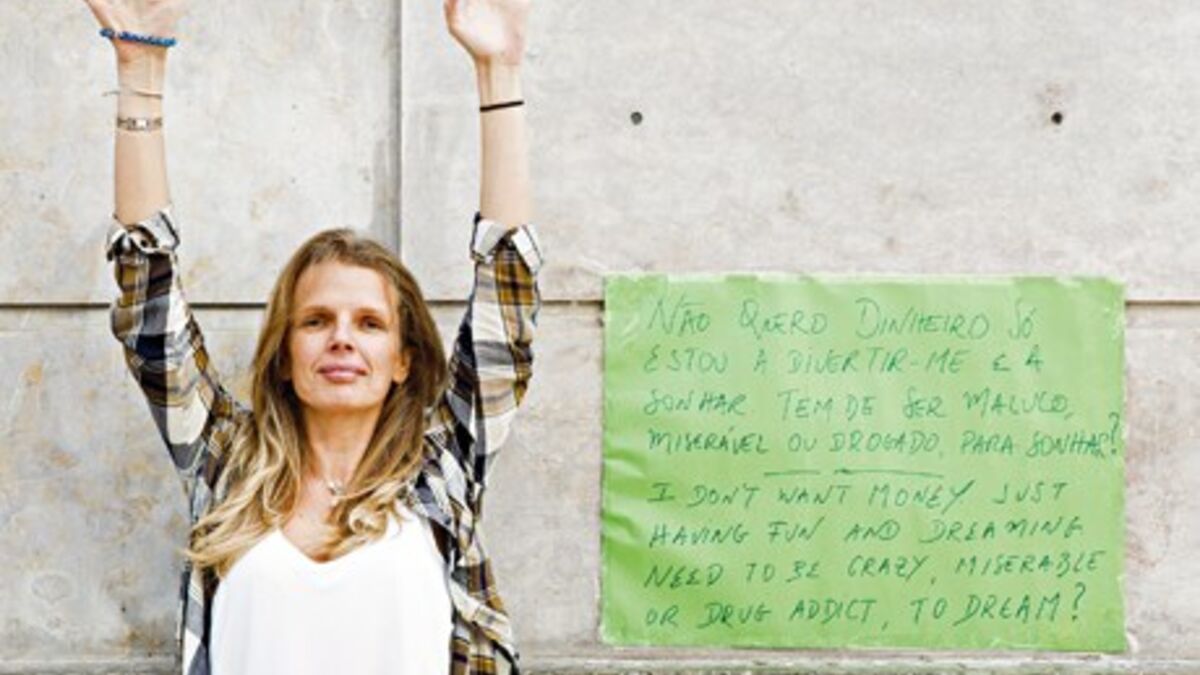 NÃO QUERO DINHEIRO SÓ
ESTOU A DIVERTIR-ME E A
SONHAR. TEM DE SER MALUCO,
MISERÁVEL OU DROGADO, PARA SONHAR?
I DON'T WANT MONEY JUST
HAVING FUN AND DREAMING
NEED TO BE CRAZY, MISERABLE
OR DRUG ADDICT, TO DREAM?